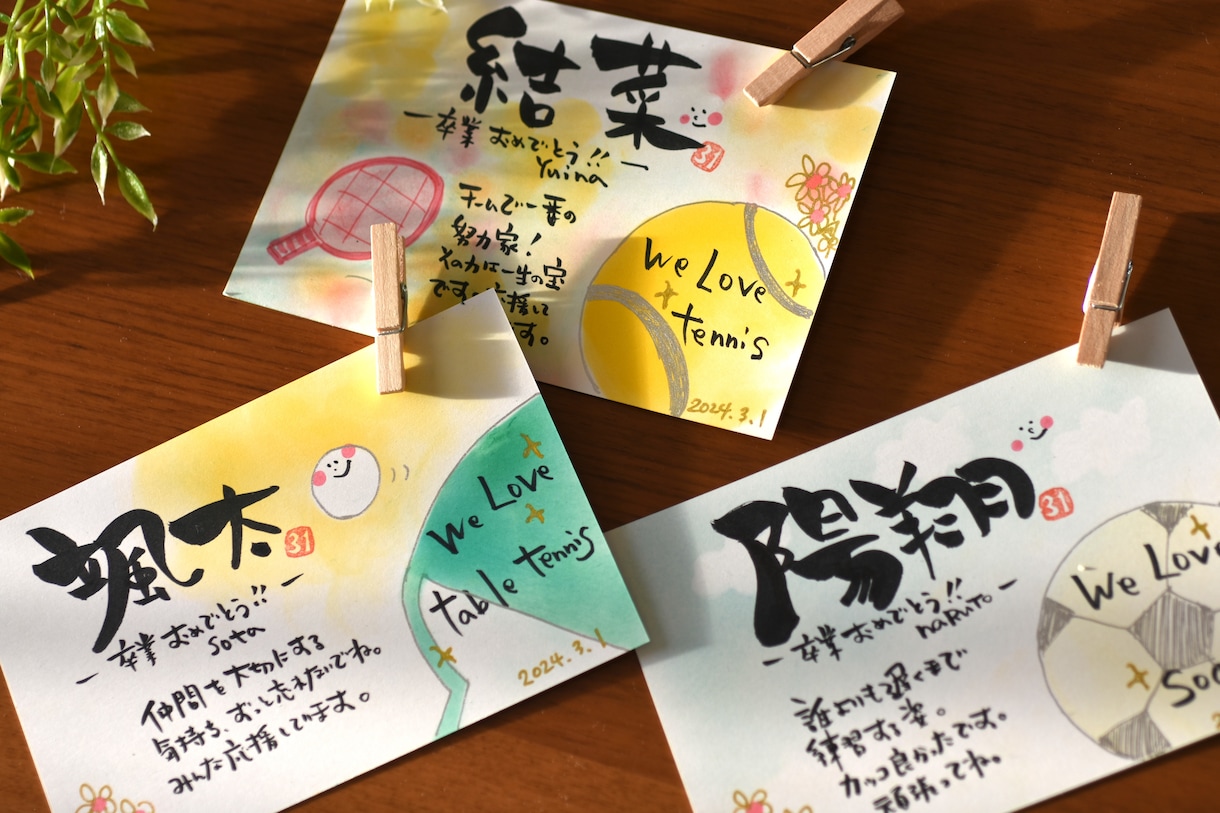 結菜
31
ー卒業 おめでとう!!ー
Yuina
チームで一番の
努力家!
その力は一生の宝
です。応援して
す。
We Love
tennis
2024.3.1
颯太
31
ー卒業 おめでとう!!ー
Sota
仲間を大切にする
気持ち、ずっと忘れないでね。
みんな応援してります。
We Love
table tennis
2024.3.1
陽翔
31
ー卒業 おめでとう!!ー
naruto
誰よりも遅くまで
練習する姿。
カッコ良かったです。
頑張ってね。
We Love
Soc